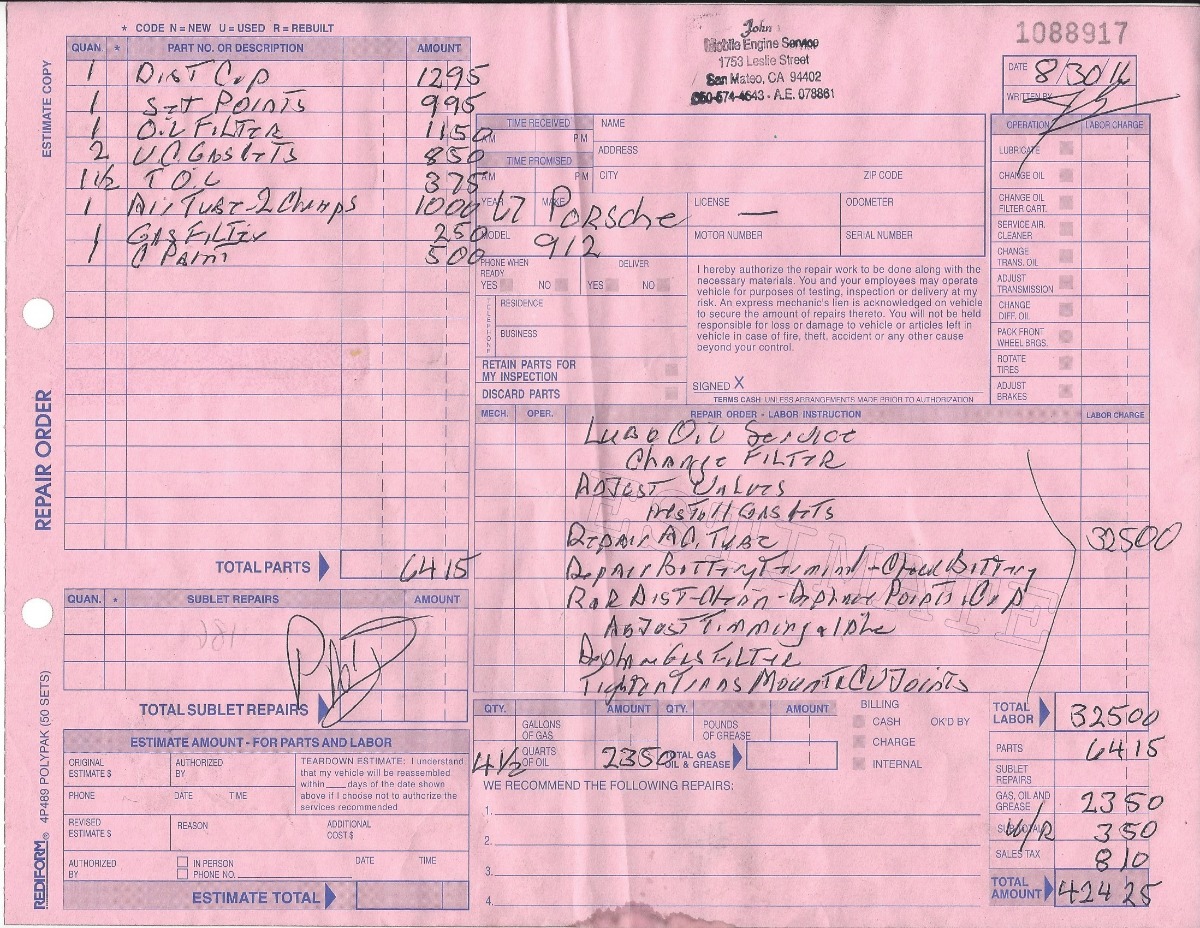 * CODE N = NEW U = USED R = REBUILT
John
Mobile Engine Service
1753 Leslie Street
San Mateo, CA 94402
650-574-4643 · A.E. 078861
1088917
DATE 8/30/16
WRITTEN BY
ESTIMATE COPY
REPAIR ORDER
REDIFORM® 4P489 POLYPAK (50 SETS)
QUAN. * PART NO. OR DESCRIPTION AMOUNT
1 DIST CAP 1295
1 SET POINTS 995
1 OIL FILTER 1150
2 V.C. GASKETS 850
1 1/2 T OIL 375
1 AIR TUBE-2 Clamps 1000
1 GAS FILTER 250
1 PAINT 500
TOTAL PARTS 6415
QUAN. * SUBLET REPAIRS AMOUNT
TOTAL SUBLET REPAIRS
PAID
ESTIMATE AMOUNT - FOR PARTS AND LABOR
ORIGINAL ESTIMATE $
AUTHORIZED BY
TEARDOWN ESTIMATE: I understand
that my vehicle will be reassembled
within____ days of the date shown
above if I choose not to authorize the
services recommended
PHONE DATE TIME
REVISED ESTIMATE $
REASON
ADDITIONAL COST $
AUTHORIZED BY
IN PERSON
PHONE NO.
DATE TIME
ESTIMATE TOTAL
TIME RECEIVED
AM PM
TIME PROMISED
AM PM
NAME
ADDRESS
CITY ZIP CODE
YEAR MAKE 67 PORSCHE
MODEL 912
LICENSE —
ODOMETER
MOTOR NUMBER
SERIAL NUMBER
PHONE WHEN READY
YES NO
DELIVER
YES NO
TELEPHONE
RESIDENCE
BUSINESS
RETAIN PARTS FOR
MY INSPECTION
DISCARD PARTS
I hereby authorize the repair work to be done along with the
necessary materials. You and your employees may operate
vehicle for purposes of testing, inspection or delivery at my
risk. An express mechanic's lien is acknowledged on vehicle
to secure the amount of repairs thereto. You will not be held
responsible for loss or damage to vehicle or articles left in
vehicle in case of fire, theft, accident or any other cause
beyond your control.
SIGNED X
TERMS CASH UNLESS ARRANGEMENTS MADE PRIOR TO AUTHORIZATION
OPERATION LABOR CHARGE
LUBRICATE
CHANGE OIL
CHANGE OIL FILTER CART.
SERVICE AIR CLEANER
CHANGE TRANS. OIL
ADJUST TRANSMISSION
CHANGE DIFF. OIL
PACK FRONT WHEEL BRGS.
ROTATE TIRES
ADJUST BRAKES
MECH. OPER. REPAIR ORDER - LABOR INSTRUCTION LABOR CHARGE
ESTIMATE
LUBE OIL SERVICE
CHANGE FILTER
ADJUST VALVES
INSTALL GASKETS
REPAIR TUBE 32500
REPAIR BATTERY Terminal + Check Battery
R&R DIST-Clean-Replace Points, Cap
ADJUST TIMMING & IDLE
Replace GAS FILTER
TIGHTEN TRANS MOUNT & CV JOINTS
QTY. AMOUNT QTY. AMOUNT
GALLONS OF GAS
POUNDS OF GREASE
4 1/2 QUARTS OF OIL 2350
TOTAL GAS OIL & GREASE
BILLING
CASH OK'D BY
CHARGE
INTERNAL
WE RECOMMEND THE FOLLOWING REPAIRS:
1.
2.
3.
4.
TOTAL LABOR 32500
PARTS 6415
SUBLET REPAIRS
GAS, OIL AND GREASE 2350
SUBTOTAL W/R 350
SALES TAX 810
TOTAL AMOUNT 42425